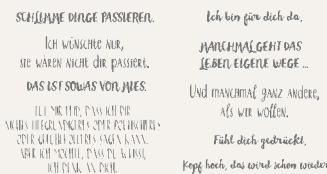 SCHLIMME DINGE PASSIEREN.
Ich wünschte nur,
sie wären nicht dir passiert.
DAS IST SOWAS VON MIES.
TUT MIR LEID, DASS ICH DIR
NICHTS
ODER SAGEN KANN.
ABER ICH MÖCHTE, DASS DU WEISST,
ICH DENK AN DICH.
Ich bin für dich da.
MANCHMAL GEHT DAS
LEBEN EIGENE WEGE ...
Und manchmal ganz andere,
als wir wollen.
Fühl dich gedrückt.
Kopf hoch, das wird schon wieder